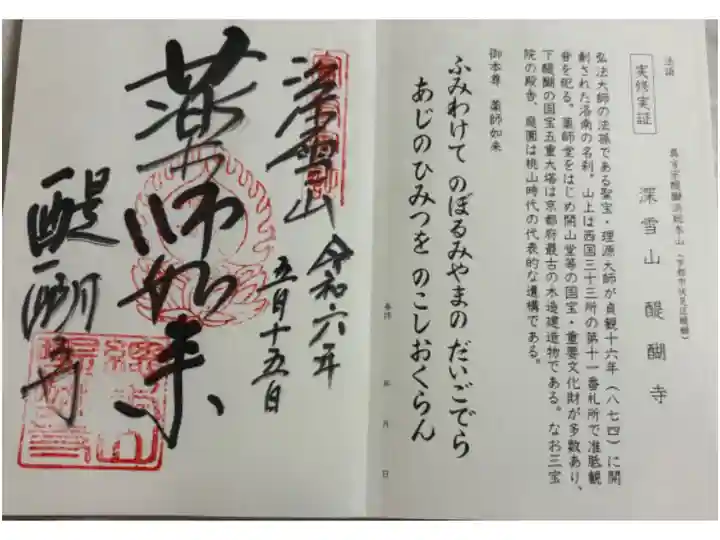 法語
実修実証
真言宗醍醐派総本山(京都市伏見区醍醐)
深雪山 醍醐寺
弘法大師の法孫である聖宝・理原大師が貞観十六年(八七四)に開
創された洛南の名刹。山上は西国三十三所の第十一番札所で准胝観
音を祀る。薬師堂をはじめ開山堂等の国宝・重要文化財が多数あり、
下醍醐の国宝五重大塔は京都府最古の木造建造物である。なお三宝
院の殿舎、庭園は桃山時代の代表的な遺構である。
御本尊 薬師如来
ふみわけて のぼるみやまの だいごでら
あじのひみつを のこしおくらん
年 月 日
深雪山
令和六年
五月十五日
薬師如来
醍醐寺